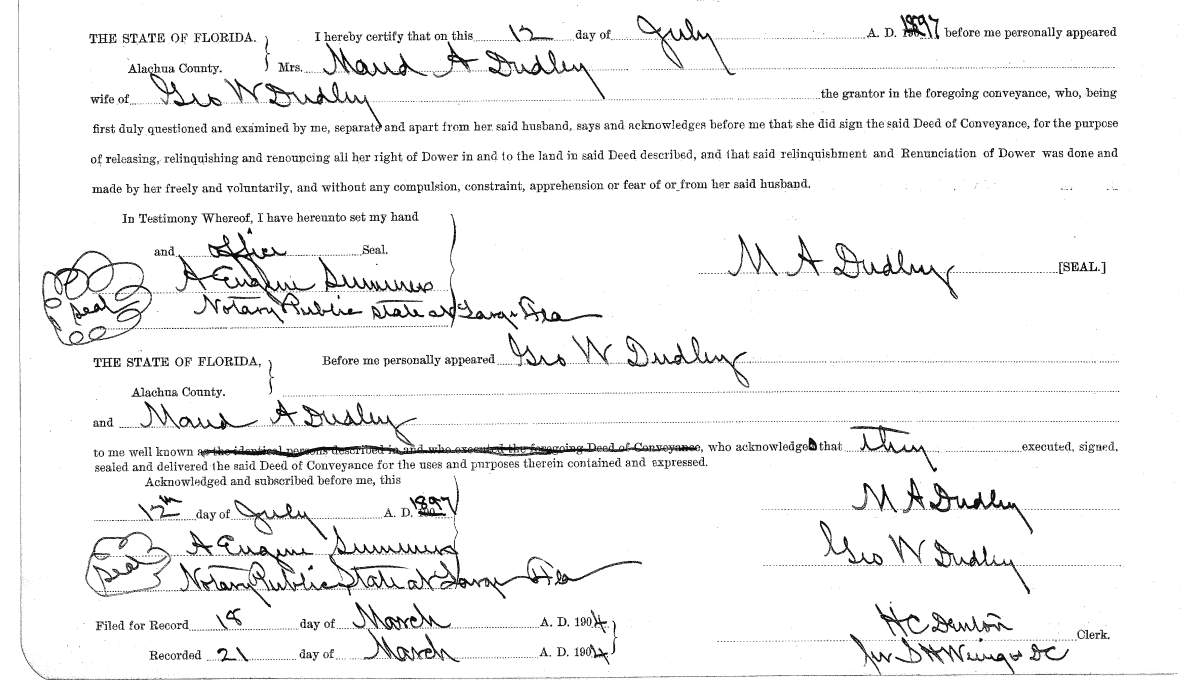 THE STATE OF FLORIDA. I hereby certify that on this 12 day of July A. D. 1897 before me personally appeared
Alachua County. Mrs. Maud A Dudley
wife of Geo W Dudley the grantor in the foregoing conveyance, who, being
first duly questioned and examined by me, separate and apart from her said husband, says and acknowledges before me that she did sign the said Deed of Conveyance, for the purpose
of releasing, relinquishing and renouncing all her right of Dower in and to the land in said Deed described, and that said relinquishment and Renunciation of Dower was done and
made by her freely and voluntarily, and without any compulsion, constraint, apprehension or fear of or from her said husband.
In Testimony Whereof, I have hereunto set my hand
and office Seal.
M A Dudley [SEAL.]
A Eugene Summers
Seal
Notary Public State at Large Fla
THE STATE OF FLORIDA, Before me personally appeared Geo W Dudley
Alachua County.
and Maud A Dudley
to me well known as the identical persons described in and who executed the foregoing Deed of Conveyance, who acknowledged that they executed, signed,
sealed and delivered the said Deed of Conveyance for the uses and purposes therein contained and expressed.
Acknowledged and subscribed before me, this
12th day of July A. D. 1897
M A Dudley
A Eugene Summers
Geo W Dudley
Seal
Notary Public State at Large Fla
Filed for Record 18 day of March A. D. 1904
H C Denton Clerk.
Recorded 21 day of March A. D. 1904
DC